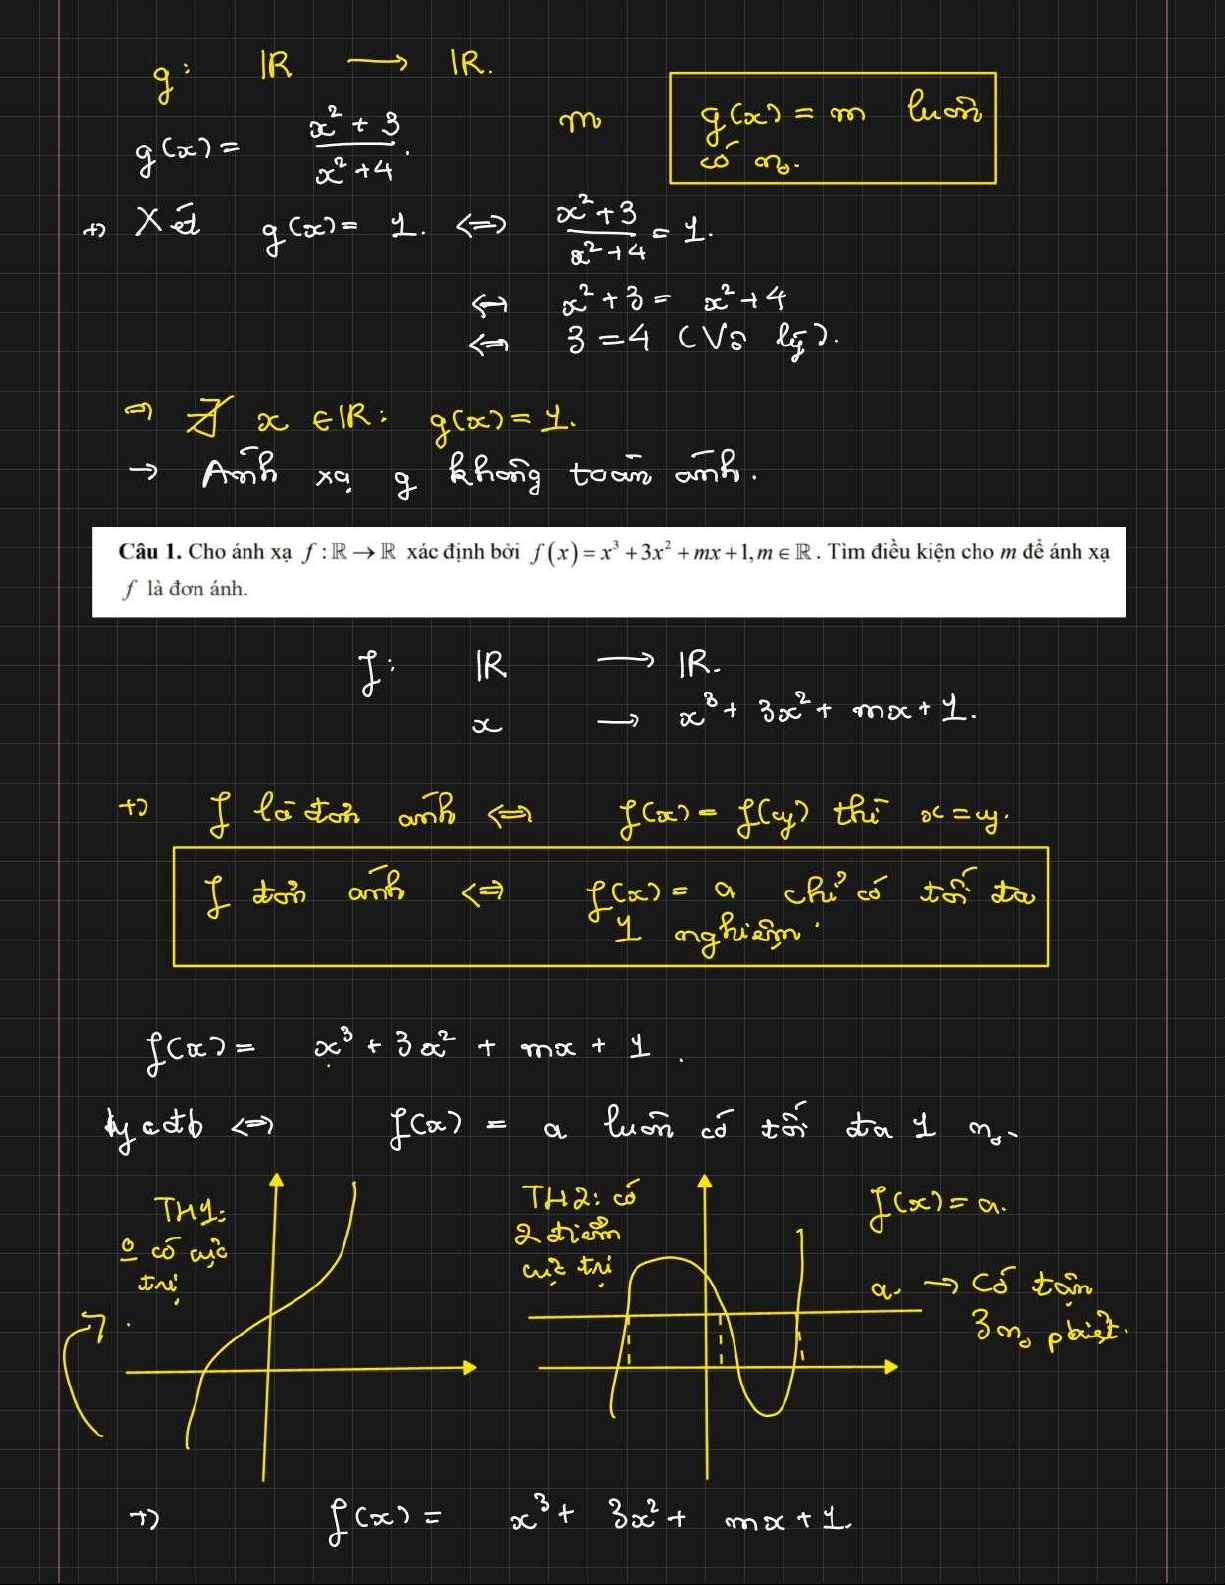 g: ℝ → ℝ.
g(x) = (x² + 3)/(x² + 4).
m
g(x) = m luôn
có n₀.
+) Xét g(x) = 1. ⇔ (x²+3)/(x²+4) = 1.
⇔ x² + 3 = x² + 4
⇔ 3 = 4 (Vô lý).
⇒ ∄ x ∈ ℝ: g(x) = 1.
→ Ánh xạ g không toàn ánh.
Câu 1. Cho ánh xạ f : ℝ → ℝ xác định bởi f(x) = x³ + 3x² + mx + 1, m ∈ ℝ. Tìm điều kiện cho m để ánh xạ
f là đơn ánh.
f: ℝ → ℝ.
x → x³ + 3x² + mx + 1.
+) f là đơn ánh ⇔ f(x) = f(y) thì x = y.
f đơn ánh ⇔ f(x) = a chỉ có tối đa
1 nghiệm.
f(x) = x³ + 3x² + mx + 1.
ycđb ⇔ f(x) = a luôn có tối đa 1 n₀.
TH1:
o có cực
trị
TH2: có
2 điểm
cực trị
f(x) = a.
a. → Có tận
3 n₀ pbiệt.
+) f(x) = x³ + 3x² + mx + 1.